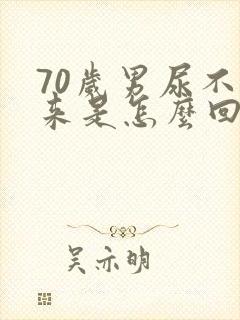 70歲男尿不
來是怎麼回
吴亦明